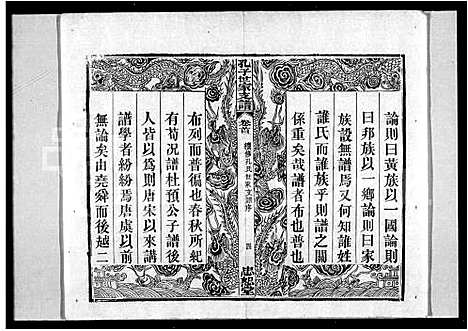 論則曰黃族以一國論則
曰邦族以一鄉論則曰家
族設無譜焉又何知誰姓
誰氏而誰族乎則譜之關
係重矣哉譜者布也普也
孔子世家支譜
卷首
續修孔氏世家支譜序
四
布列而普徧也春秋所紀
有荀况譜杜預公子譜後
人皆以爲則唐宋以來講
譜學者紛紛焉唐虞以前
無論矣由堯舜而後越二